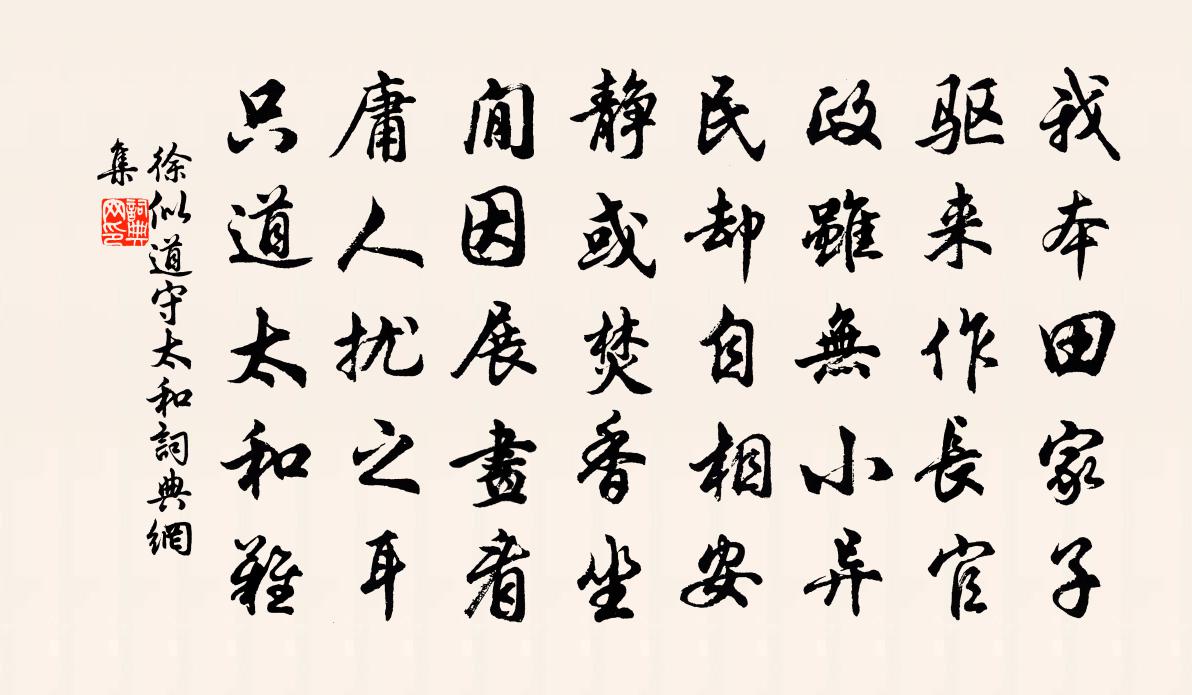 我本田家子
驱来作長官
政雖無小异
民却自相安
静或焚香坐
閒因展畫看
庸人扰之耳
只道太和難
徐似道守太和詞典網
集
詞典
网印